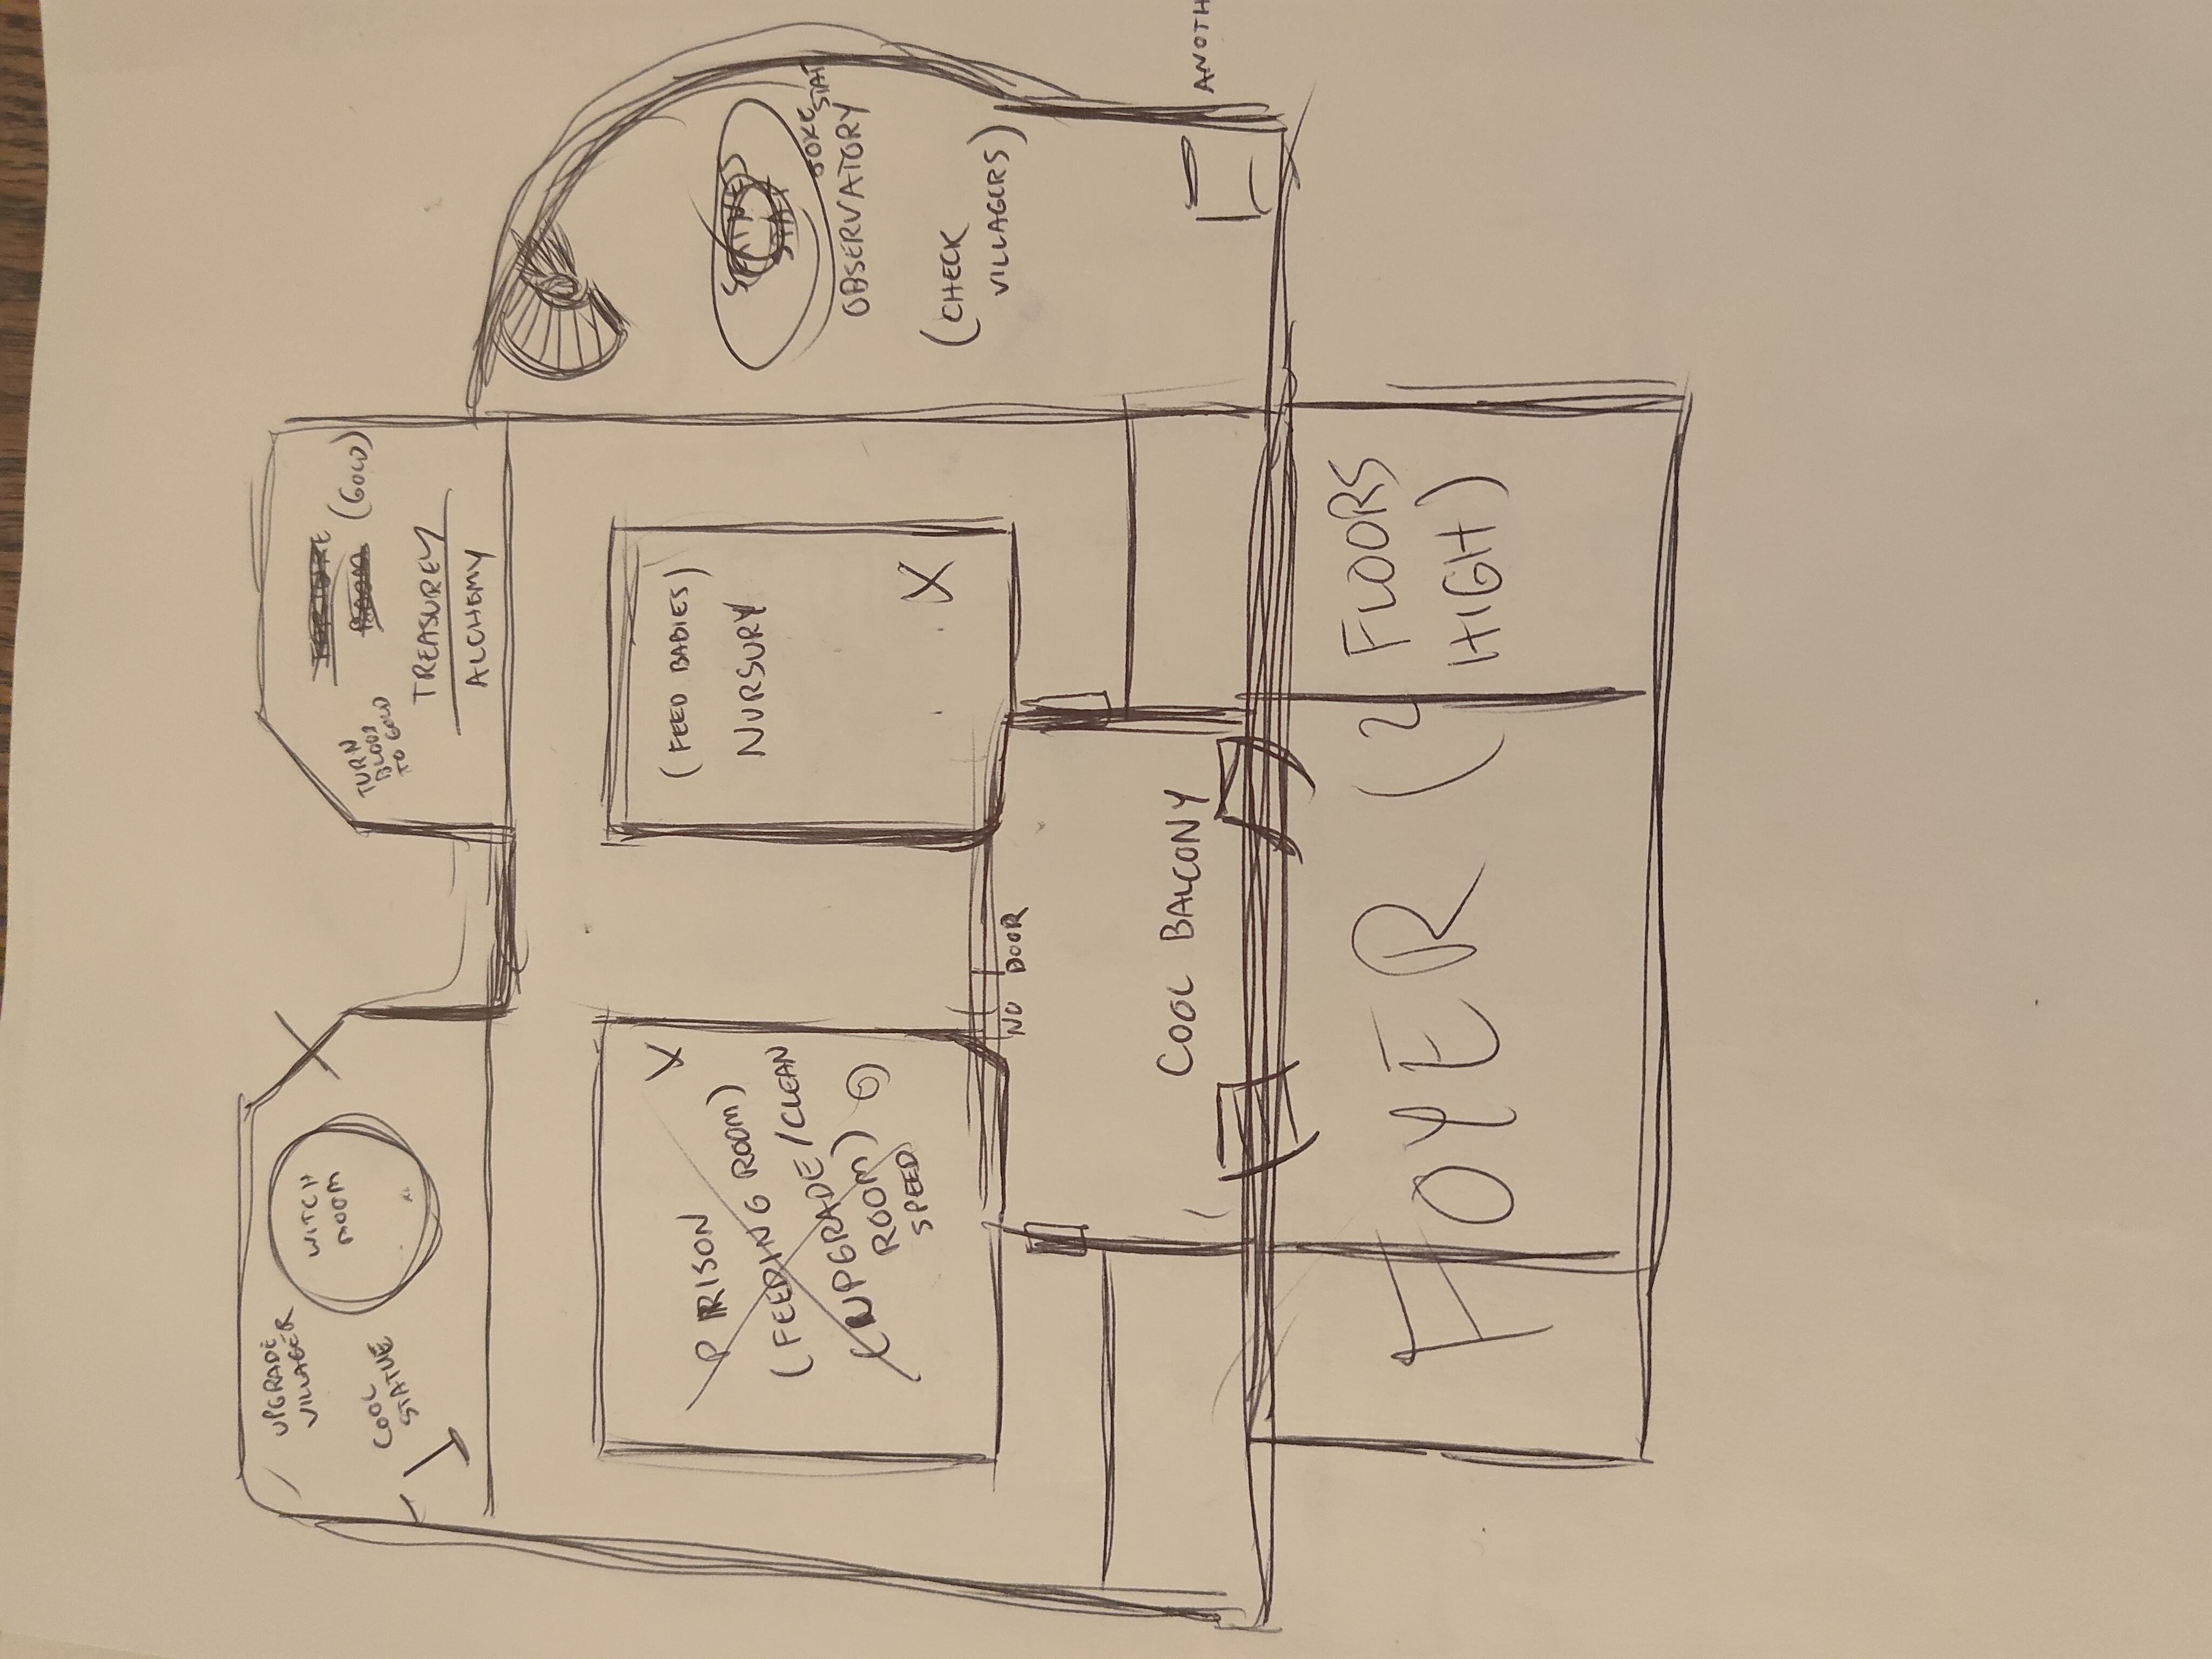 UPGRADE
VILLAGER
WITCH
ROOM
COOL
STATUE
TORTURE
ROOM
(GOLD)
TURN
BLOOD
TO GOLD
TREASUREY
ALCHEMY
PRISON
(FEEDING ROOM)
(UPGRADE/CLEAN
ROOM)
SPEED
X
(FEED BABIES)
NURSURY
X
JOKE STAT
OBSERVATORY
(CHECK
VILLAGERS)
NO DOOR
COOL BALCONY
ANOTH
FOYER (2 FLOORS
HIGH)